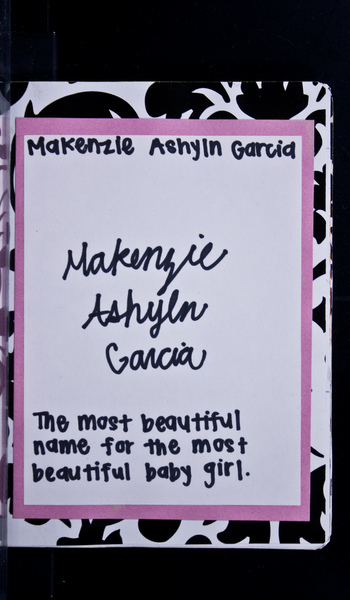 Makenzie Ashyln Garcia
Makenzie
Ashyln
Garcia
The most beautiful
name for the most
beautiful baby girl.